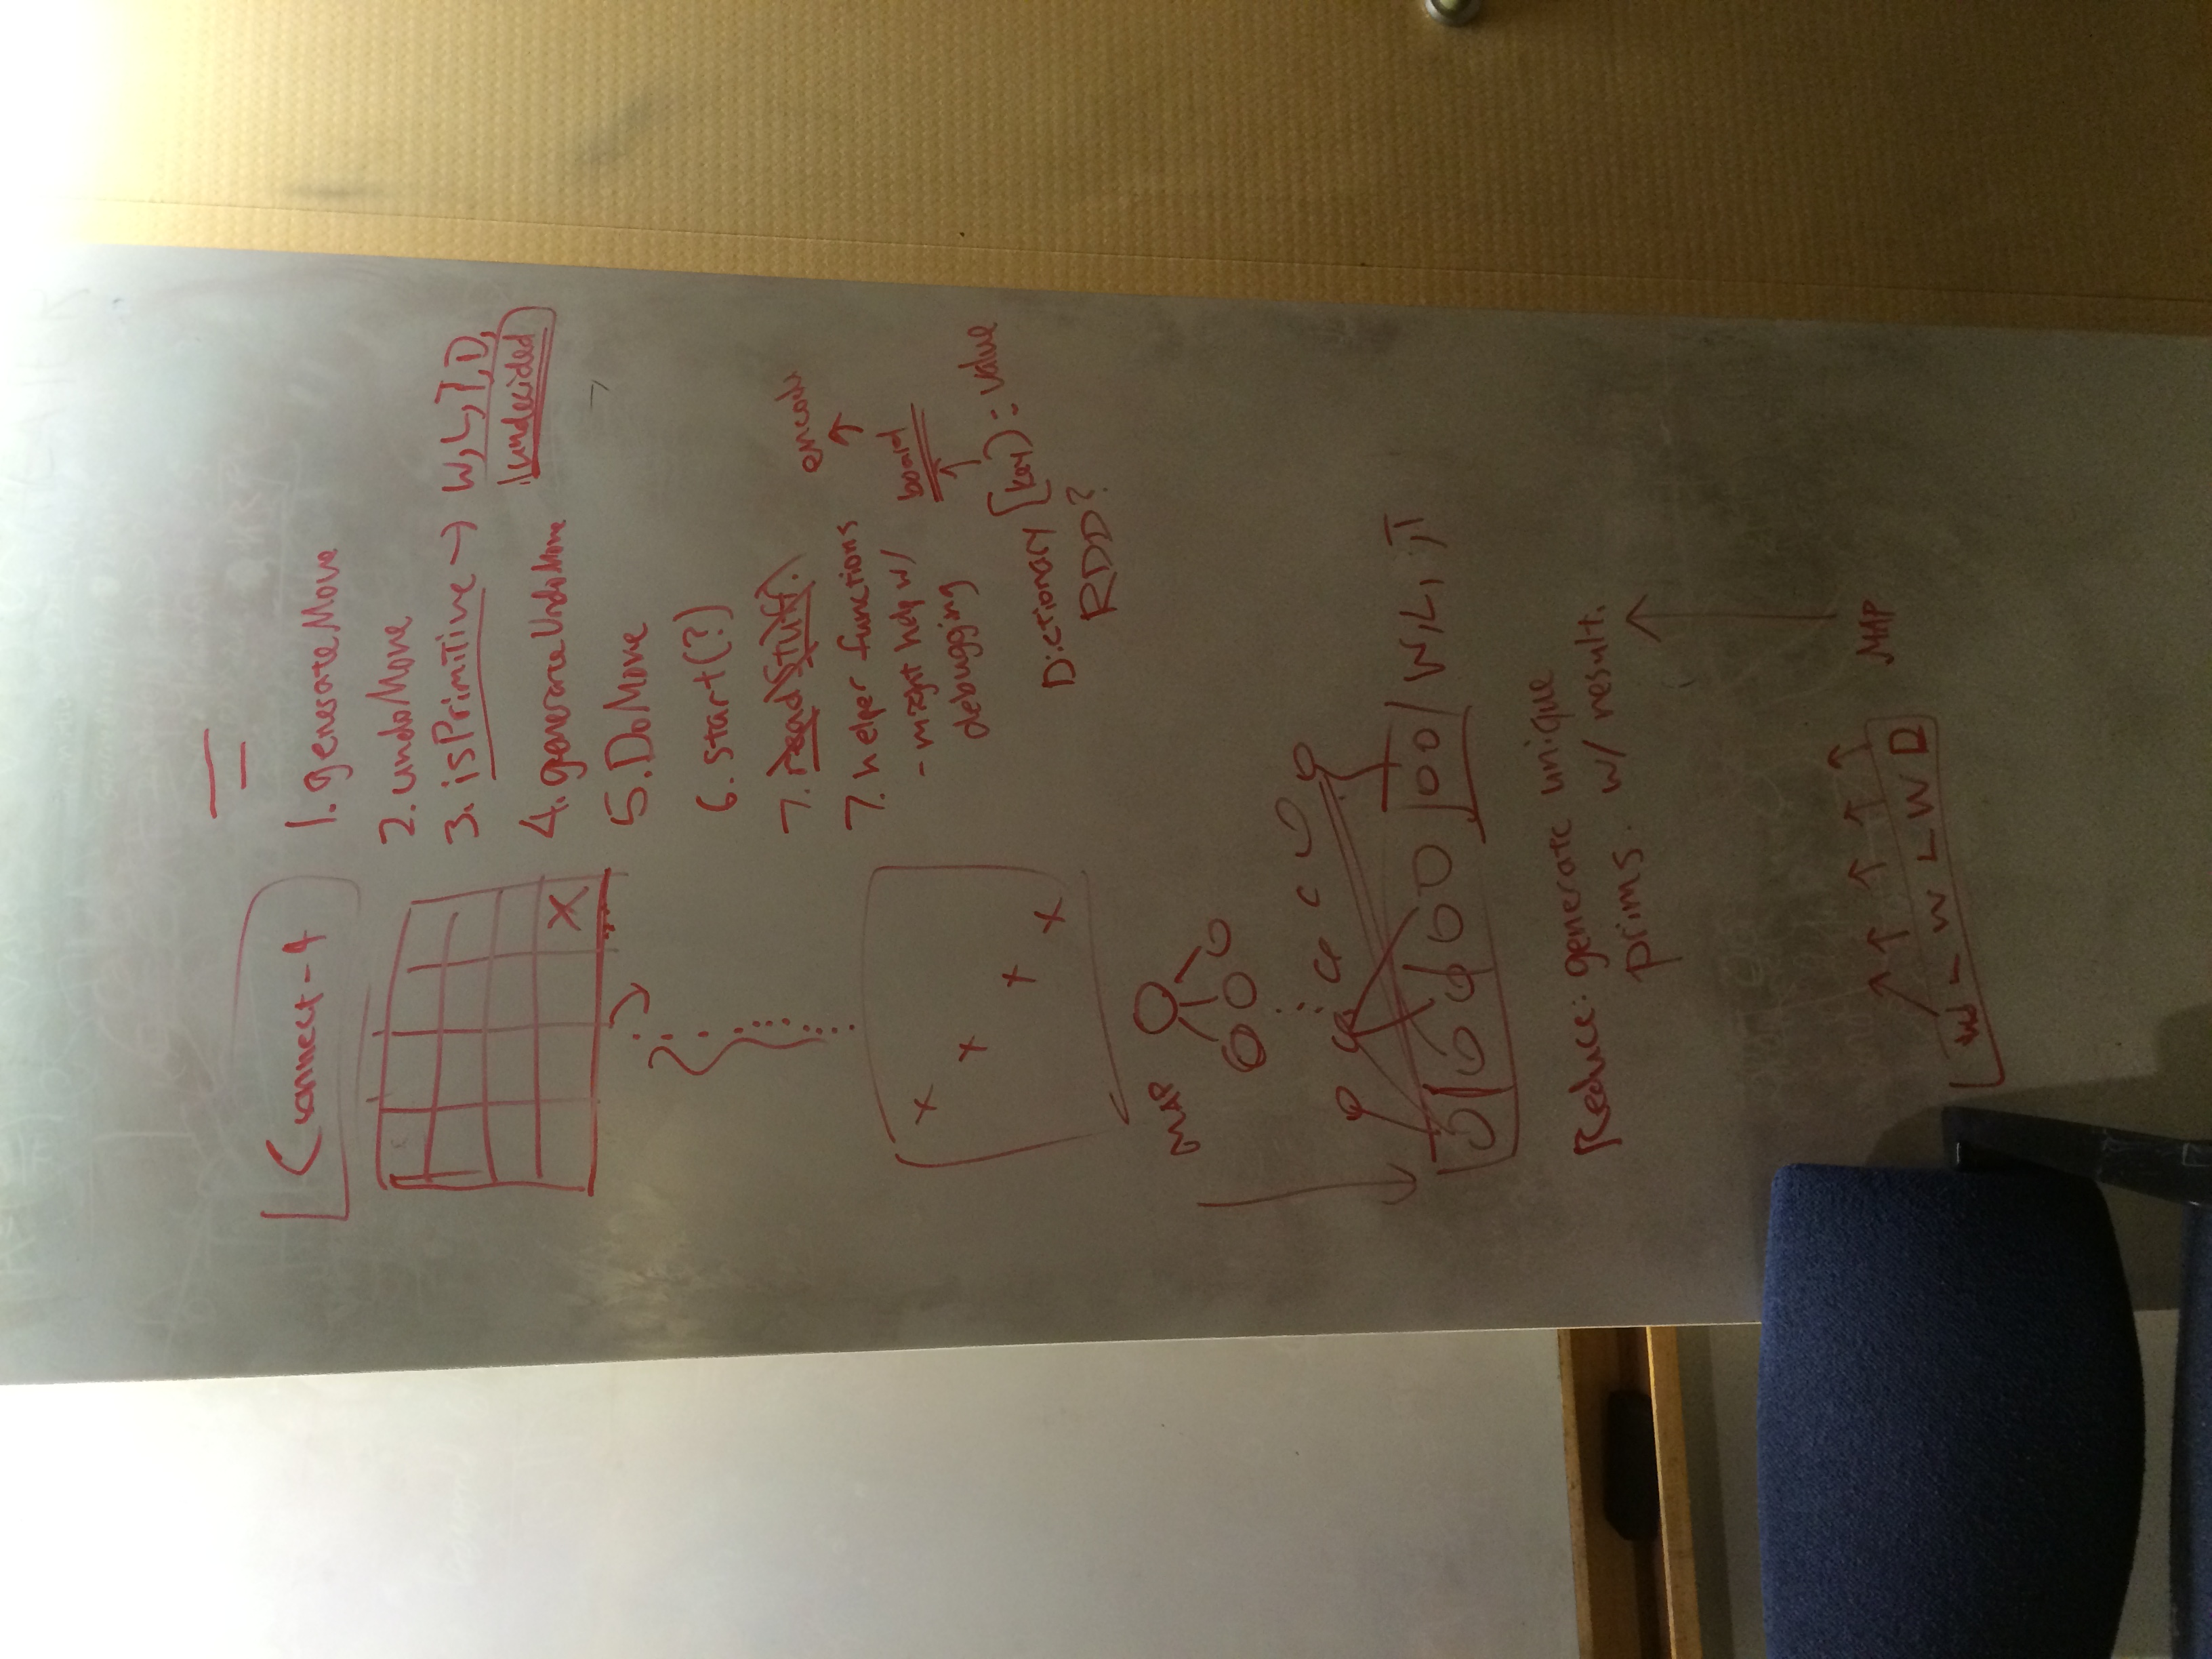 Connect-4
1. generateMove
2. undoMove
3. isPrimitive → W, L, T, D,
undecided
X
4. generateUndoMove
5. DoMove
6. start(?)
7. read stuff.
7. helper functions
- might help w/
debugging
encode
board
Dictionary [key) = value
RDD?
X
X
X
X
MAP
W, L, , T
Reduce: generate unique
prims. w/ result.
MAP
W L W L W D